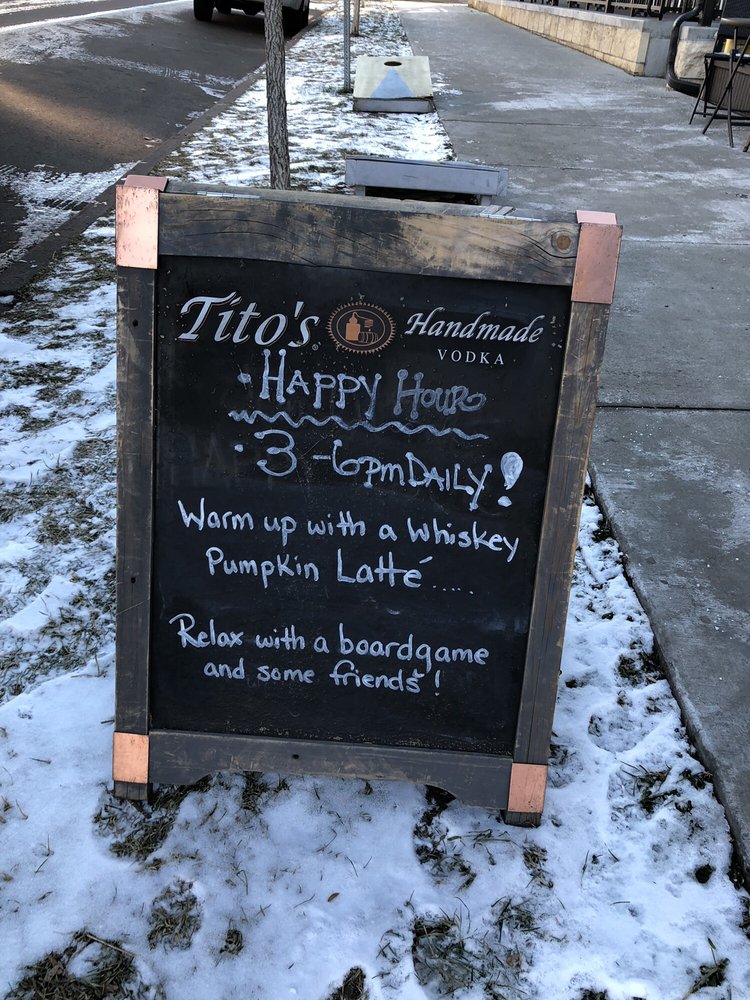 Tito's Handmade
VODKA
• HAPPY HOUR
• 3-6pm DAILY!
Warm up with a Whiskey
Pumpkin Latté.....
Relax with a boardgame
and some friends!